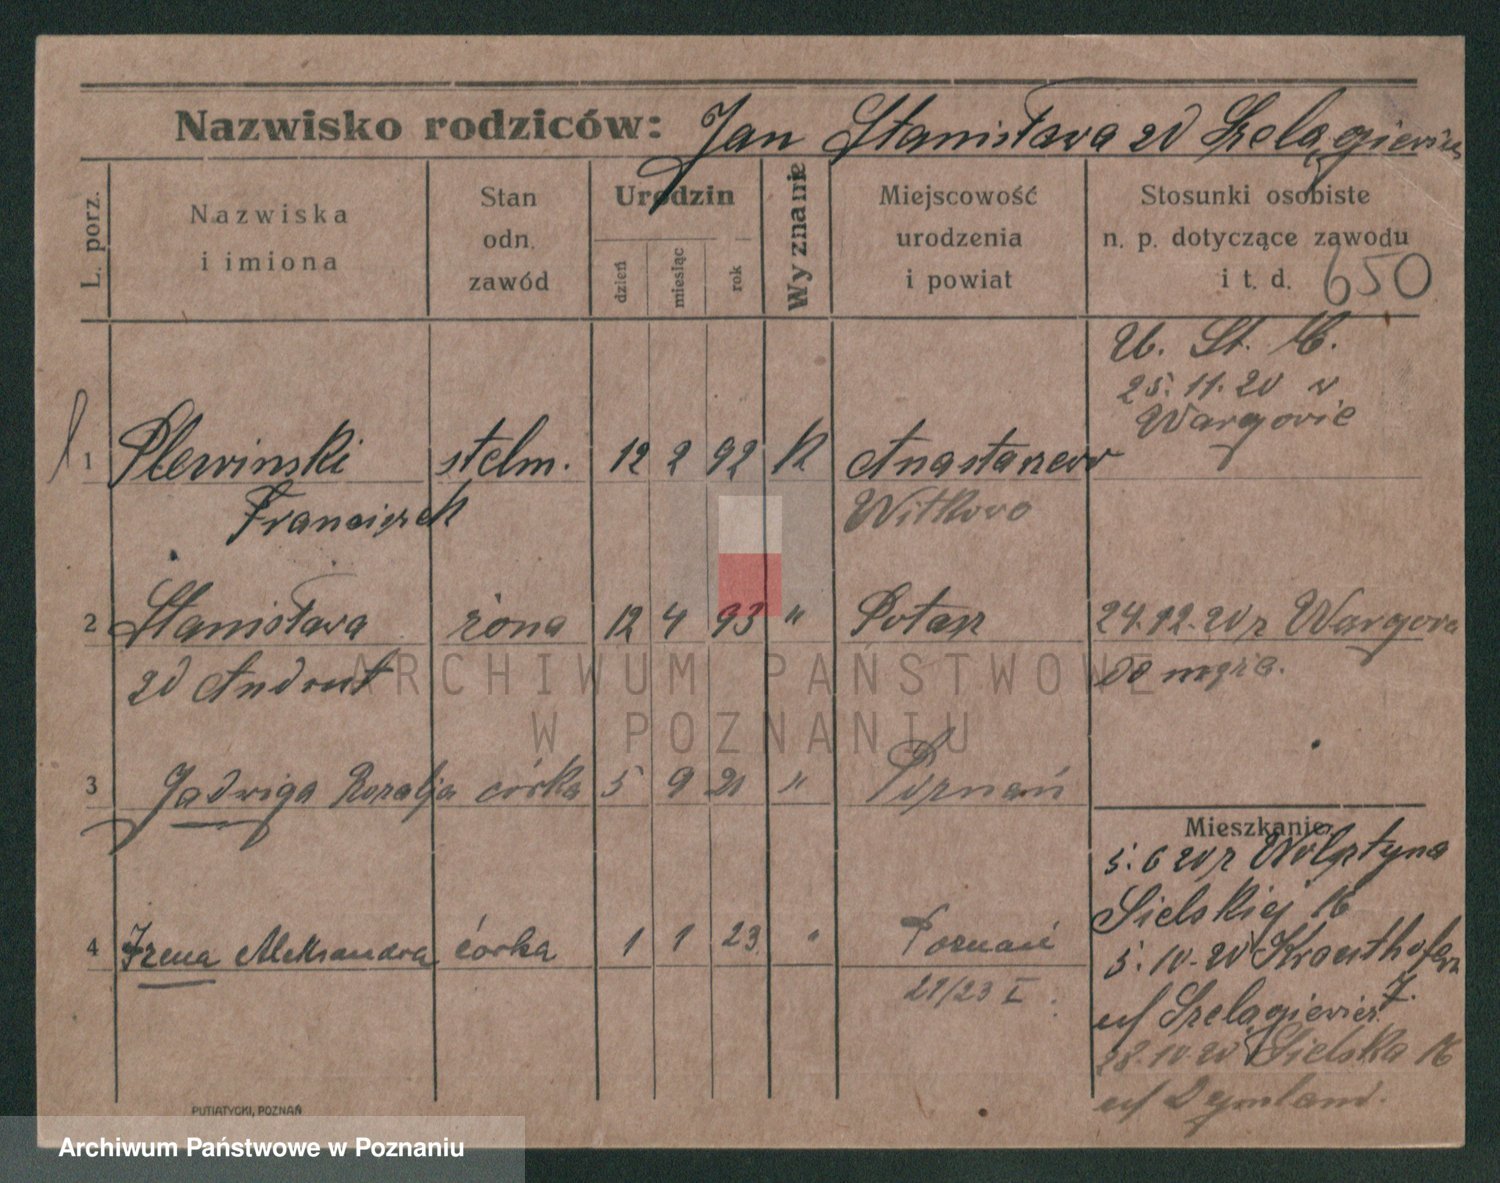 Nazwisko rodziców: Jan Stanisława zd Szelągiewicz
L. porz.
Nazwiska
i imiona
Stan
odn.
zawód
Urodzin
dzień
miesiąc
rok
Wyznanie
Miejscowość
urodzenia
i powiat
Stosunki osobiste
n. p. dotyczące zawodu
i t. d. 650
U. St. C.
25.11.20 w
Wargowie
1 Plewinski stelm. 12 2 92 k Anastazewo
Franciszek Witkowo
2 Stanisława żona 12 4 93 " Potasz 24.12.20 z Wargowa
zd Androut do męża.
3 Jadwiga Rozalja córka 5 9 21 " Poznań
Mieszkanie:
5.6 20 z Wolsztyna
Sielskiej 16
4 Irena Aleksandra córka 1 1 23 " Poznań
5.10.20 Krauthofera 7.
21/23 I.
u/ Szelągiewicz
28.10.20 Sielska 16
u/
PUTIATYCKI, POZNAŃ
ARCHIWUM PAŃSTWOWE
W POZNANIU
Archiwum Państwowe w Poznaniu